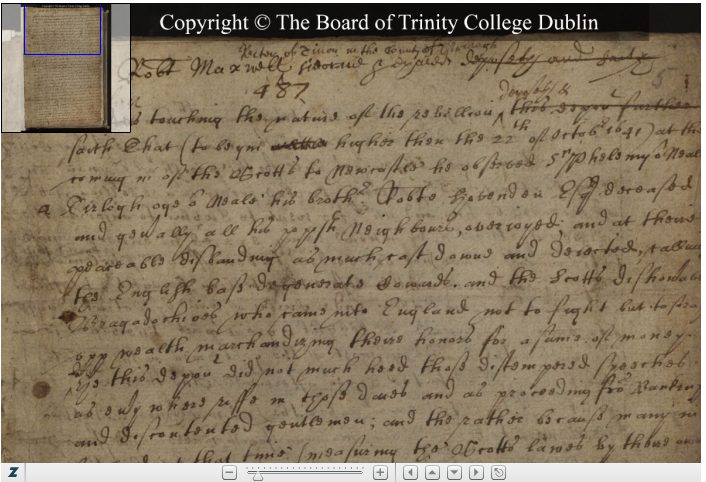 Copyright © The Board of Trinity College Dublin
Rector of in the County of
Robt Maxwell and
487
Deposeth &
touching the nature of the rebellion this depot further
saith That (to begin higher then the 22th of Octobr 1641) at the
coming in of the Scotts to Newcastle he observed Sr Phelemy ô Neale
Tirlogh oge ô Neale his brothr. Robte Hovenden Esqr deceased
and genally all his popish Neighbours, overioyed; and at theire
peaceable disbanding as much cast downe and deiected, calling
the English base degenerate Cowards. and the Scotts dishonorable
Bragadochioes who came into England not to fight but to
upp wealth marchandizing theire honors for a sume of money.
this depot did not much heed those distempered speeches
as euy where riffe in those daies and as proceeding fro
and discontented gentlemen; and the rather because many
that time (measuring the Scotts lawes by theire owne
Z